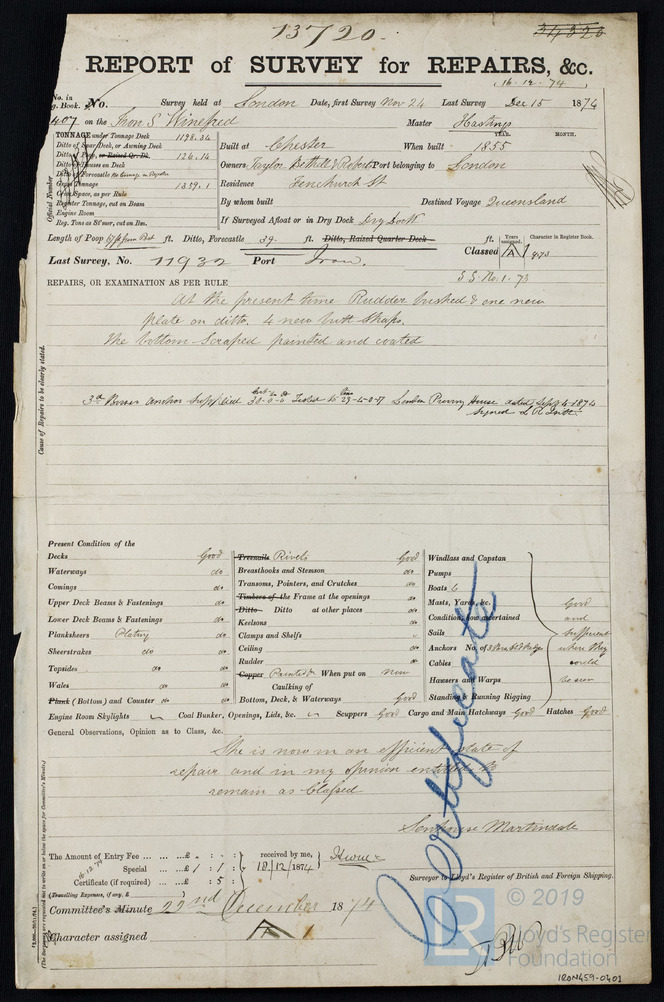 13720.
34320
REPORT of SURVEY for REPAIRS, &c.
16.12.74
No. in Reg. Book. No. Survey held at London Date, first Survey Nov 24 Last Survey Dec 15 1874
407 on the Iron S Winefred Master Hastings
TONNAGE under Tonnage Deck 1198.34
Ditto of Spar Deck, or Awning Deck
Ditto of Poop, or Raised Qr. Dk. 126.14
Ditto of Houses on Deck
Ditto of Forecastle
Gross Tonnage 1359.1
Crew Space, as per Rule
Register Tonnage, cut on Beam
Engine Room
Reg. Tons as St'mer, cut on Bm.
Official Number
YEAR. MONTH.
Built at Chester When built 1855
Owners Taylor Bethell & Roberts Port belonging to London
Residence Fenchurch St
By whom built Destined Voyage Queensland
If Surveyed Afloat or in Dry Dock Dry Dock
Length of Poop ft. Ditto, Forecastle 39 ft. Ditto, Raised Quarter Deck ft.
Years assigned. Character in Register Book.
Classed A 1 9.73
Last Survey, No. 11932 Port Iron.
S S. No. 1. 73
REPAIRS, OR EXAMINATION AS PER RULE
At the present time Rudder bushed & one new
plate on ditto. 4 new butt straps.
The bottom scraped painted and coated
Cause of Repairs to be clearly stated.
3rd Bower anchor supplied 30-0-0 Tested to 29-4-0-17 London Proving House dated Sept 4 1874
Signed
Present Condition of the
Decks Good
Waterways do
Comings do
Upper Deck Beams & Fastenings do
Lower Deck Beams & Fastenings do
Planksheers Plating do
Sheerstrakes do do
Topsides do do
Wales do do
Plank (Bottom) and Counter do do
Treenails Rivets Good
Breasthooks and Stemson do
Transoms, Pointers, and Crutches do
Timbers of the Frame at the openings do
Ditto Ditto at other places do
Keelsons do
Clamps and Shelfs
Ceiling do
Rudder do
Copper Painted & When put on new
Caulking of
Bottom, Deck, & Waterways Good
Windlass and Capstan
Pumps
Boats 6
Masts, Yards, &c.
Condition, how ascertained
Sails
Anchors No. of
Cables
Hawsers and Warps
Standing & Running Rigging
Good
and
sufficient
where they
could
be seen
Engine Room Skylights Coal Bunker, Openings, Lids, &c. Scuppers Good Cargo and Main Hatchways Good Hatches Good
General Observations, Opinion as to Class, &c.
She is now in an efficient state of
repair and in my opinion entitled to
remain as Classed
Certificate
Senhouse Martindale
Surveyor to Lloyd's Register of British and Foreign Shipping.
The Amount of Entry Fee ... ... ...£
Special ... ...£ 1 : 1 :
Certificate (if required) ... ...£ : 5 :
(Travelling Expenses, if any, £ )
received by me,
18/12/1874
16.12.74
Committee's Minute 22nd December 1874
Character assigned A 1
LR
© 2019
Lloyd's Register
Foundation
IRON459-0401